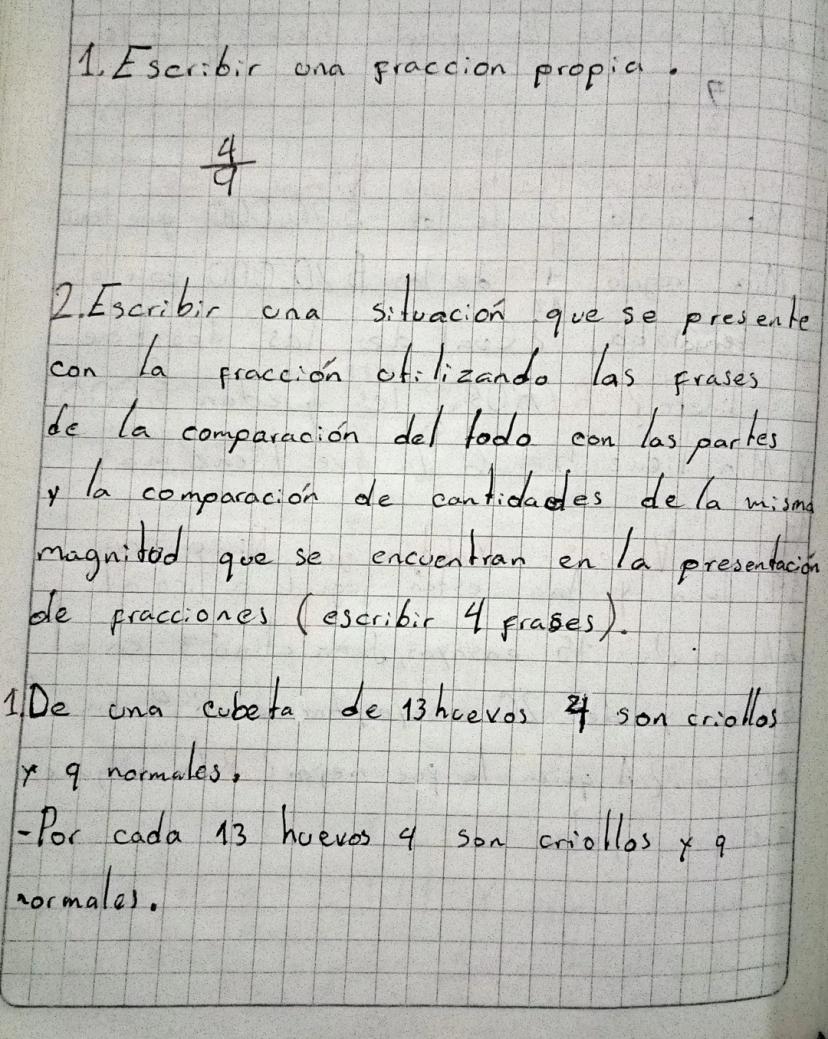 1. Escribir una fraccion propia.
4
9
2. Escribir una situación que se presente
con la fracción utilizando las frases
de la comparación del todo con las partes
y la comparación de cantidades de la misma
magnitud que se encuentran en la presentación
de fracciones (escribir 4 frases).
1. De una cubeta de 13 huevos 4 son criollos
y 9 normales.
- Por cada 13 huevos 4 son criollos y 9
normales.